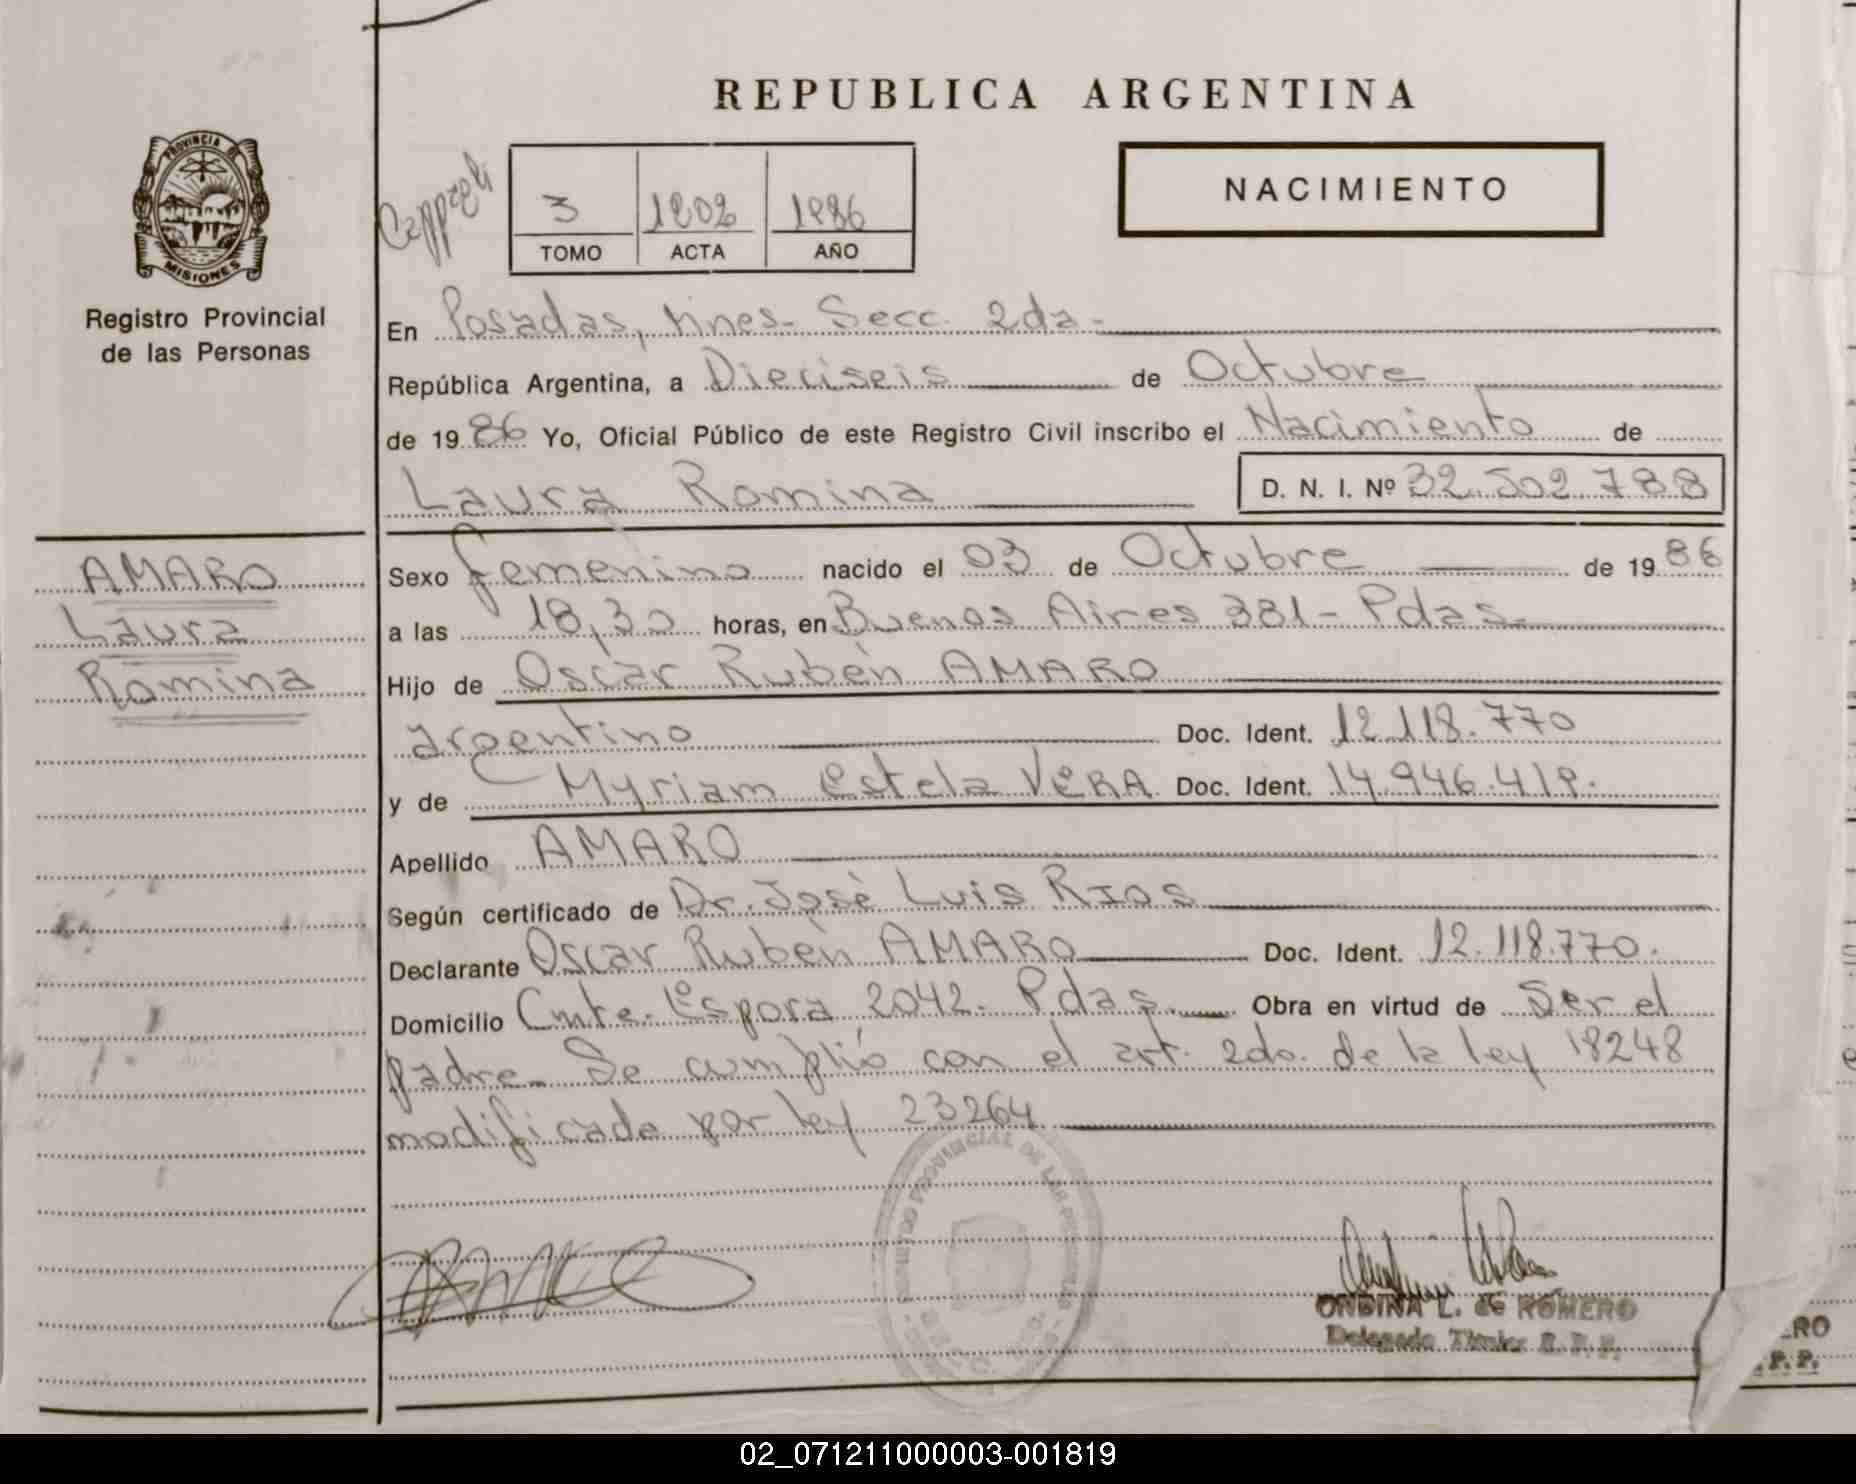 REPUBLICA ARGENTINA
PROVINCIA DE
MISIONES
Registro Provincial
de las Personas
3 1202 1986
TOMO ACTA AÑO
NACIMIENTO
En Posadas, Mnes. Secc. 2da.
República Argentina, a Dieciseis de Octubre
de 1986 Yo, Oficial Público de este Registro Civil inscribo el Nacimiento de
Laura Romina D. N. I. Nº 32.502.788
AMARO
Laura
Romina
Sexo femenino nacido el 03 de Octubre de 1986
a las 18,30 horas, en Buenos Aires 381 - Pdas.
Hijo de Oscar Rubén AMARO
argentino Doc. Ident. 12.118.770
y de Myriam Estela VERA Doc. Ident. 14.946.419.
Apellido AMARO
Según certificado de Dr. José Luis RIOS
Declarante Oscar Rubén AMARO Doc. Ident. 12.118.770.
Domicilio Cmte. Espora 2042. Pdas. Obra en virtud de Ser el
padre. Se cumplió con el art. 2do. de la ley 18248
modificada por ley 23264
PROVINCIAL DE LAS PERSONAS
ONDINA L. de ROMERO
Delegada Titular R. P. P.
02_071211000003-001819